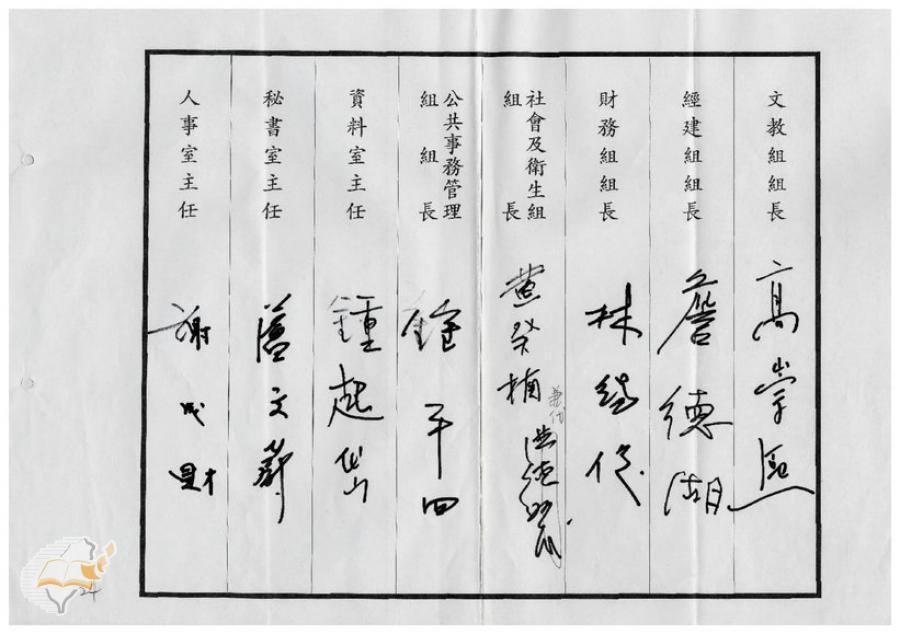 文教組組長
高崇
經建組組長
詹德湖
財務組組長
林
社會及衛生組組長
黃癸楠
兼代
公共事務管理組組長
資料室主任
鍾起岱
秘書室主任
文
人事室主任
謝
24